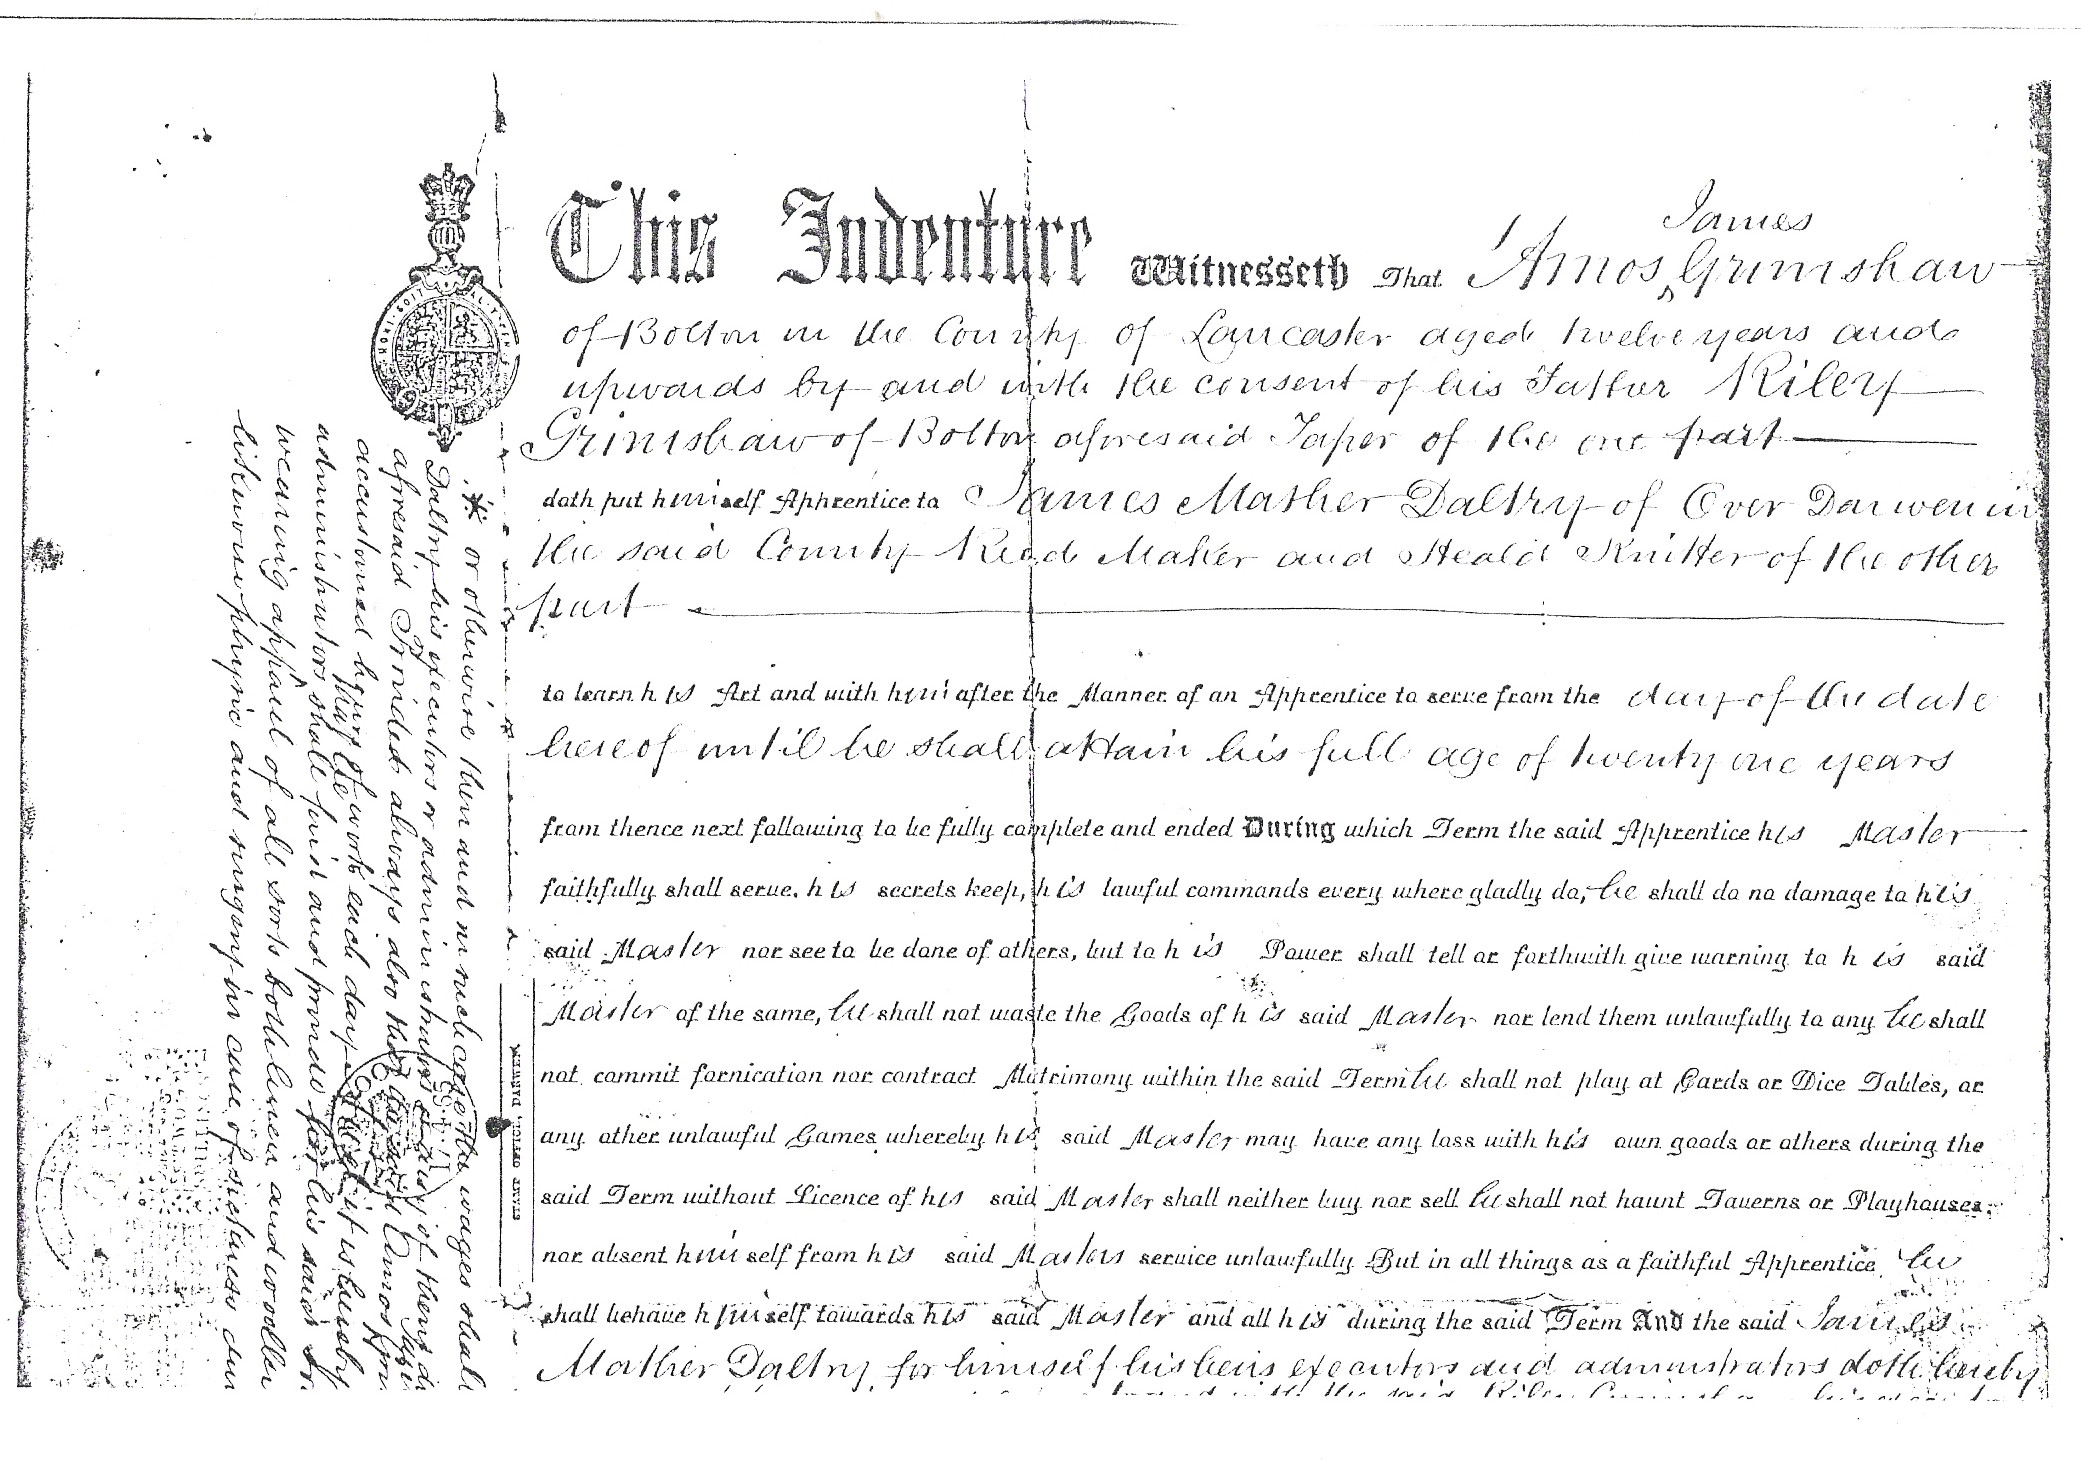 This Indenture Witnesseth That Amos James Grimshaw
of Bolton in the County of Lancaster aged twelve years and
upwards by and with the consent of his Father Riley
Grimshaw of Bolton aforesaid Taper of the one part
doth put himself Apprentice to James Mather Daltry of Over Darwen in
the said County Reed Maker and Heald Knitter of the other
part
to learn his Art and with him after the Manner of an Apprentice to serve from the day of the date
hereof until he shall attain his full age of twenty one years
from thence next following to be fully complete and ended During which Term the said Apprentice his Master
faithfully shall serve, his secrets keep, his lawful commands every where gladly do, he shall do no damage to his
said Master nor see to be done of others, but to his Power shall tell or forthwith give warning to his said
Master of the same, he shall not waste the Goods of his said Master nor lend them unlawfully to any he shall
not commit fornication nor contract Matrimony within the said Term he shall not play at Cards or Dice Tables, or
any other unlawful Games whereby his said Master may have any loss with his own goods or others during the
said Term without Licence of his said Master shall neither buy nor sell he shall not haunt Taverns or Playhouses
nor absent himself from his said Masters service unlawfully But in all things as a faithful Apprentice he
shall behave himself towards his said Master and all his during the said Term And the said James
Mather Daltry for himself his heirs executors and administrators doth hereby
* or otherwise then and in such case the wages shall
Daltry his executors or administrators or any of them
aforesaid Provided always also that the said Amos
accustomed hours of work each day it is hereby
administrators shall find and provide for his said
wearing apparel of all sorts both linen and woollen
likewise physic and surgery in case of sickness
HONI SOIT QUI MAL Y PENSE
STAMP OFFICE, DARWEN